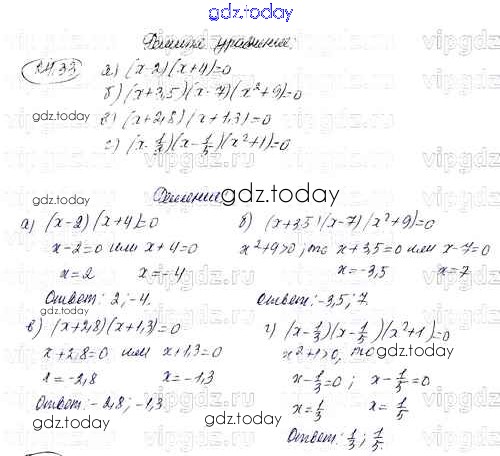 gdz.today
Решить уравнение:
24.33 а) (x-2)(x+4)=0
б) (x+3,5)(x-7)(x²+9)=0
gdz.today
в) (x+2,8)(x+1,3)=0
г) (x-1/3)(x-1/5)(x²+1)=0
gdz.today
Решение
gdz.today
а) (x-2)(x+4)=0
x-2=0 или x+4=0
x=2 x=-4
Ответ: 2; -4.
б) (x+3,5)(x-7)(x²+9)=0
x²+9>0, то x+3,5=0 или x-7=0
x=-3,5 x=7
Ответ: -3,5; 7.
gdz.today
gdz.today
в) (x+2,8)(x+1,3)=0
x+2,8=0 или x+1,3=0
x=-2,8 x=-1,3
Ответ: -2,8; -1,3.
г) (x-1/3)(x-1/5)(x²+1)=0
x²+1>0, то
x-1/3=0; x-1/5=0
x=1/3 x=1/5
Ответ: 1/3; 1/5.
gdz.today
gdz.today
gdz.today